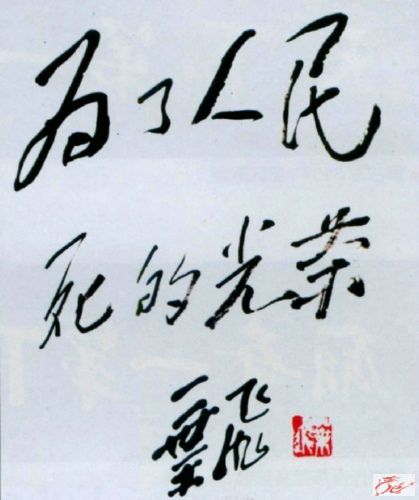 为了人民
死的光荣
葉飛